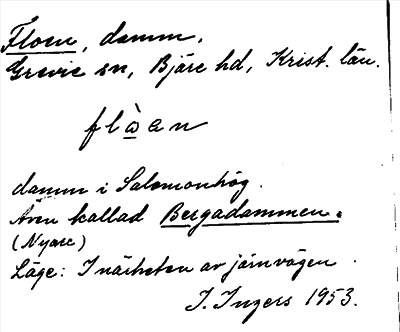 Floen, damm.
Grevie sn, Bjäre hd, Krist. län.
flò̲an
damm i Salomonhög.
Även kallad Bergadammen.
(Nyare)
Läge: I närheten av järnvägen.
I. Ingers 1953.